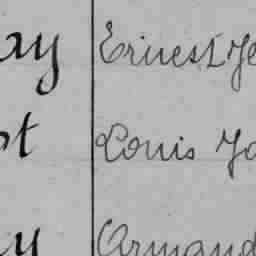 ay Ernest Je
st Louis Jo
y Armand